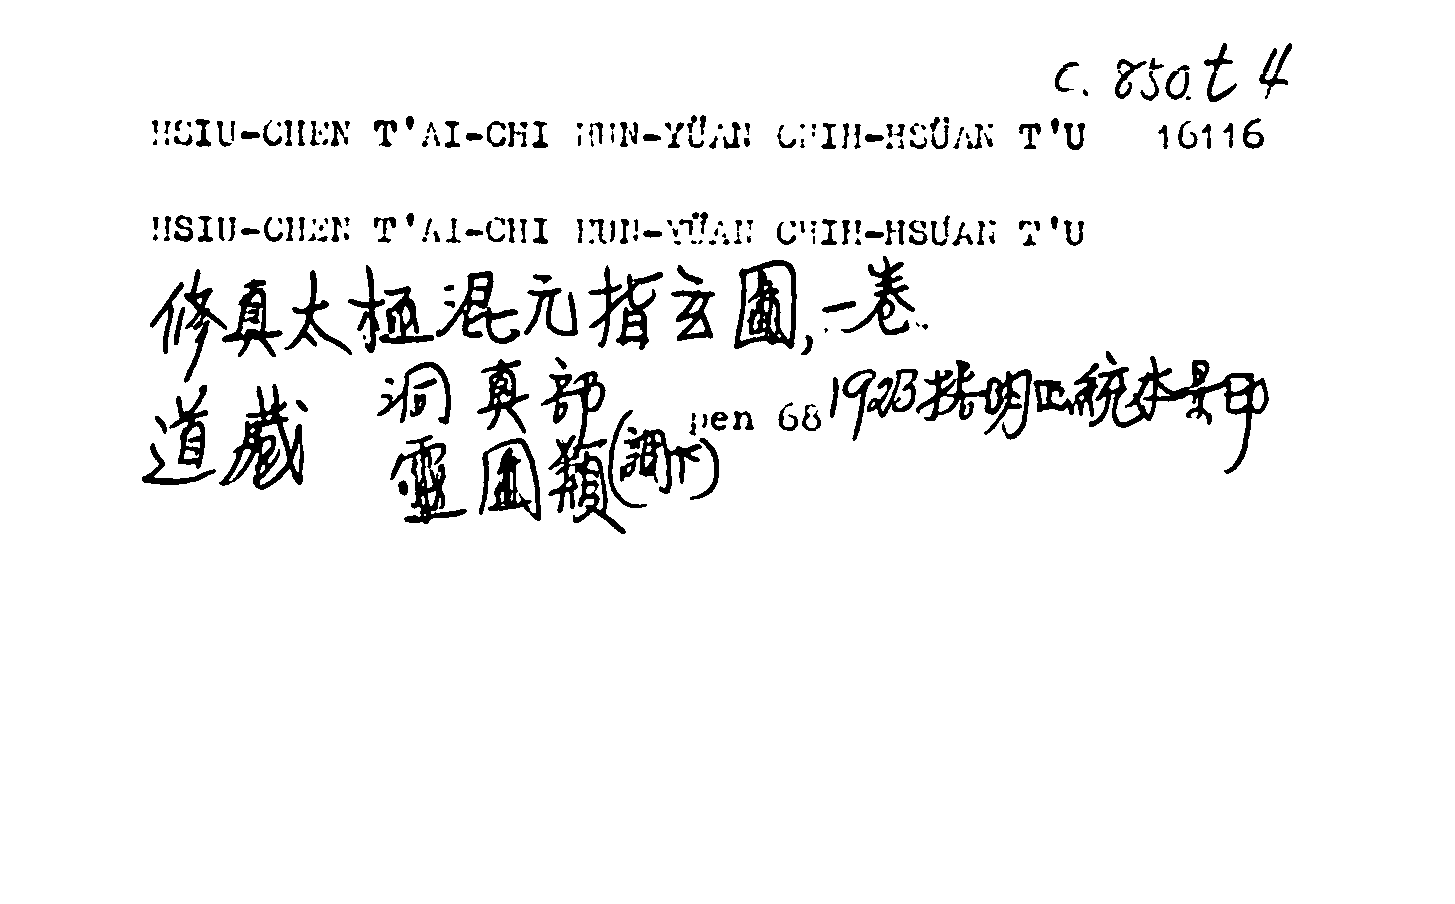 C. 850. t 4
HSIU-CHEN T'AI-CHI HUN-YÜAN CHIH-HSÜAN T'U 16116
HSIU-CHEN T'AI-CHI HUN-YÜAN CHIH-HSÜAN T'U
修真太極混元指玄圖,一卷.
道藏 洞真部 pen 68 1923据明正統本景印
靈圖類(調下)